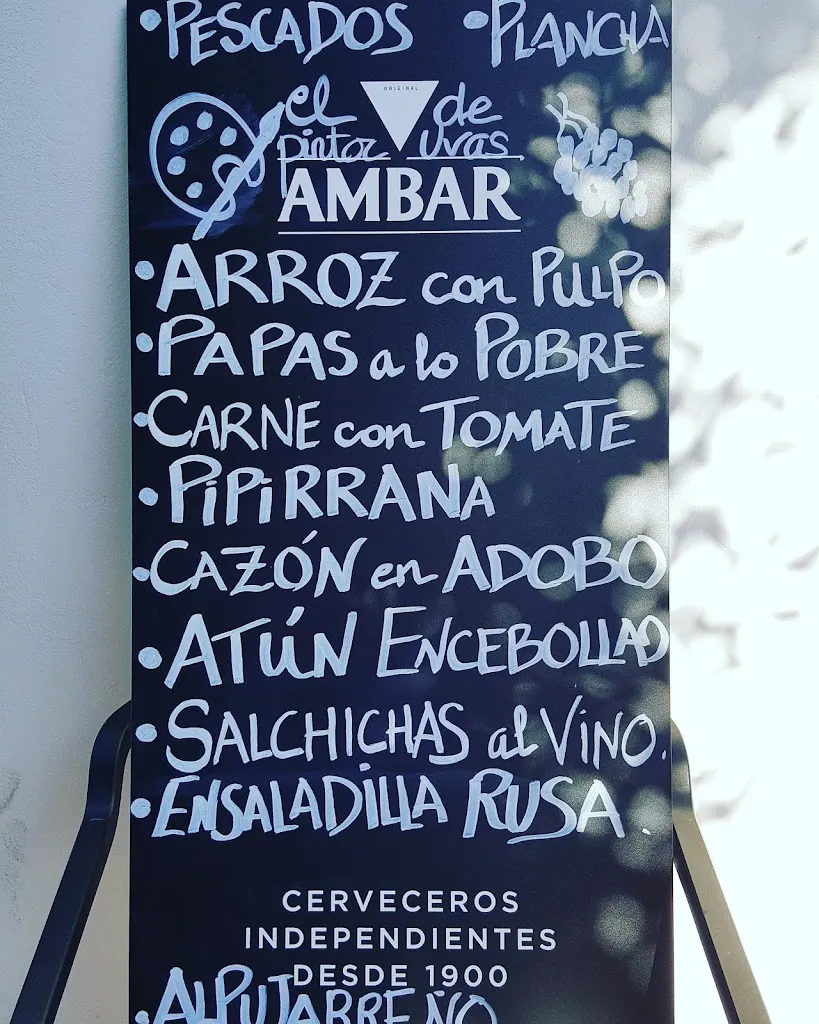 • PESCADOS • PLANCHA
ORIGINAL
el de
pintor uvas.
AMBAR
• ARROZ con PULPO
• PAPAS a lo POBRE
• CARNE con TOMATE
• PiPiRRANA
• CAZÓN en ADOBO
• ATÚN ENCEBOLLAO
• SALCHICHAS al ViNO.
• ENSALADILLA RUSA.
CERVECEROS
INDEPENDIENTES
DESDE 1900
• ALPUJARREÑO